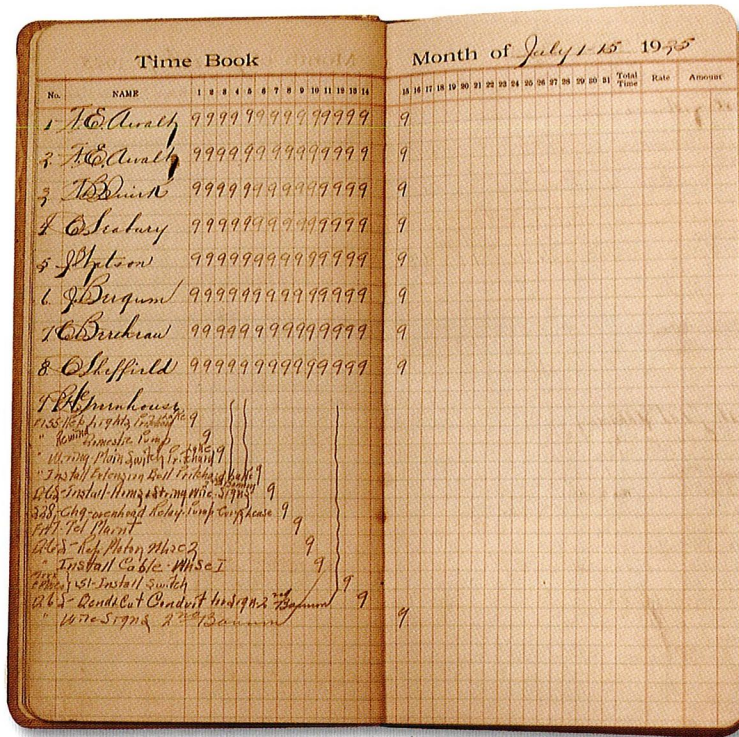 Time Book
Month of July 1-15 1925
No. NAME 1 2 3 4 5 6 7 8 9 10 11 12 13 14
15 16 17 18 19 20 21 22 23 24 25 26 27 28 29 30 31 Total Time Rate Amount
1 9 9 9 9 9 9 9 9 9 9 9 9 9 9 9
2 9 9 9 9 9 9 9 9 9 9 9 9 9 9 9
3 9 9 9 9 9 9 9 9 9 9 9 9 9 9 9
4 C Seabury 9 9 9 9 9 9 9 9 9 9 9 9 9 9 9
5 J Watson 9 9 9 9 9 9 9 9 9 9 9 9 9 9 9
6 J Bergum 9 9 9 9 9 9 9 9 9 9 9 9 9 9 9
7 C 9 9 9 9 9 9 9 9 9 9 9 9 9 9 9
8 C Sheffield 9 9 9 9 9 9 9 9 9 9 9 9 9 9 9
9 Greenhouse
Rep Lights Pritchard Lake 9
" Rewind Domestic Pump 9
" Wiring Main Switch Pritchard Lake 9
" Install Extension Bell Pritchard Lake 9
Install Hems & String Wire Signs 2nd Bannon 9
328 - Chg overhead Relay Pump 9
Tel Maint 9
Rep Motor Whse 2 9
" Install Cable - Whse I 9
51 - Install Switch 9
Cut Conduit for Sign 2nd Bannon 9
" Wire Signs 2nd Bannon 9